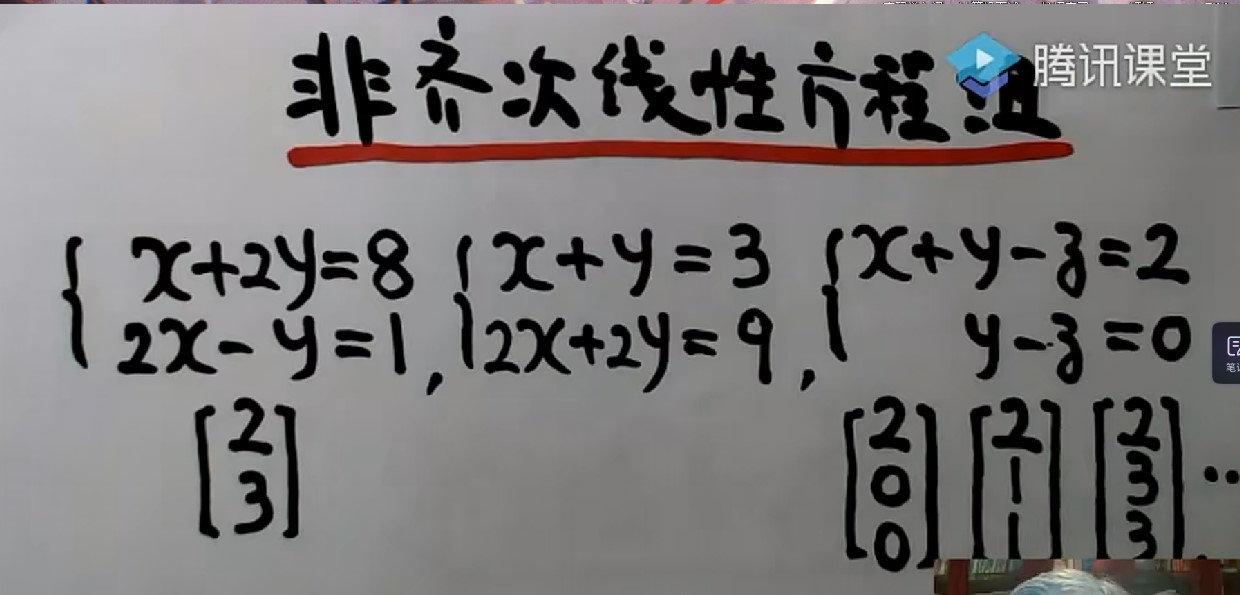 非齐次线性方程组
腾讯课堂
{ x+2y=8
2x-y=1 ,
{ x+y=3
2x+2y=9 ,
{ x+y-z=2
y-z=0
[2
3]
[2
0
0]
[2
1
1]
[2
3
3]
...
笔记